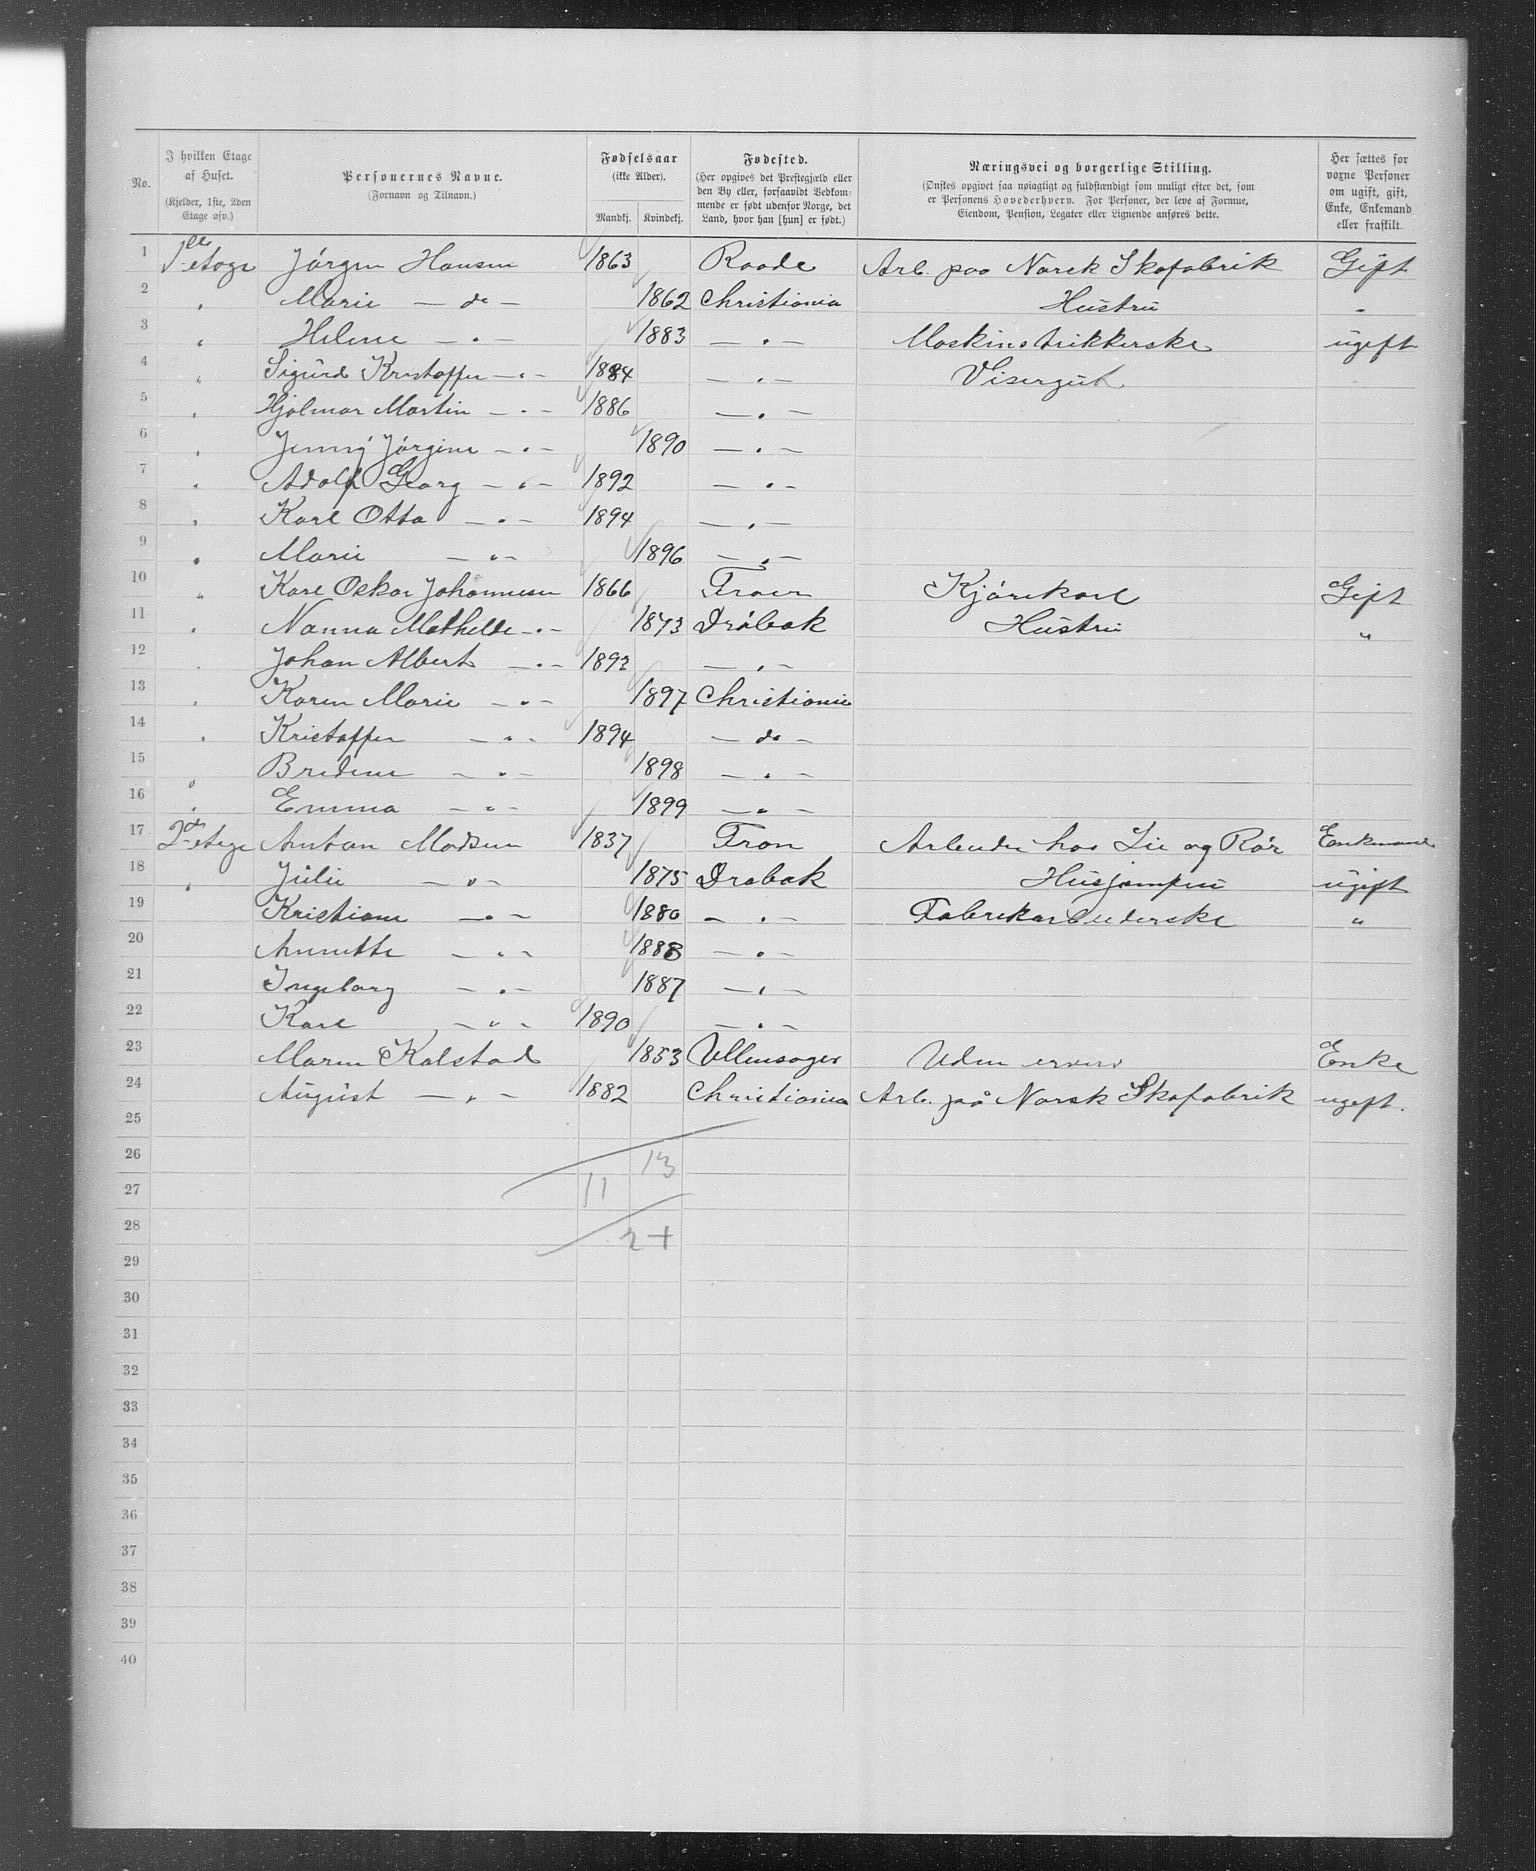 No. | I hvilken Etage af Huset. (Kjelder, 1ste, 2den Etage osv.) | Personernes Navne. (Fornavn og Tilnavn.) | Fødselsaar (ikke Alder). Mandkj. Kvindekj. | Fødested. (Her opgives det Prestegjæld eller den By eller, forsaavidt Vedkommende er født udenfor Norge, det Land, hvor han [hun] er født.) | Næringsvei og borgerlige Stilling. (Ønskes opgivet saa nøiagtigt og fuldstændigt som muligt efter det, som er Personens Hovederhverv. For Personer, der leve af Formue, Eiendom, Pension, Legater eller Lignende anføres dette. | Her sættes for voxne Personer om ugift, gift, Enke, Enkemand eller fraskilt.
1 1ste etage Jörgen Hansen 1863 Raade Arb. paa Norsk Skofabrik Gift
2 " Marie — do — 1862 Christiania Hustru "
3 " Helene — " — 1883 — " — Maskinstrikkerske ugift
4 " Sigurd Kristoffer — " — 1884 — " — Visergut
5 " Hjalmar Martin — " — 1886 — " —
6 " Jenny Jörgine — " — 1890 — " —
7 " Adolf Georg — " — 1892 — " —
8 " Karl Otto — " — 1894 — " —
9 " Marie — " — 1896 — " —
10 " Karl Oskar Johannesen 1866 Kjörekarl Gift
11 " Nanna Mathilde — " — 1873 Dröbak Hustru "
12 " Johan Albert — " — 1893 — " —
13 " Karen Marie — " — 1897 Christiania
14 " Kristoffer — " — 1894 — do —
15 " Bredine — " — 1898 — " —
16 " Emma — " — 1899 — " —
17 2den etage Anton Madsen 1837 Fron Arbeider hos Lie og Rör Enkemand
18 " Julie — " — 1875 Drøbak Husjomfru ugift
19 Kristiane — " — 1880 — " — Fabrikarbeiderske "
20 Annette — " — 1888 — " —
21 Ingeborg — " — 1887 — " —
22 Karl — " — 1890 — " —
23 Maren Kalstad 1853 Ullensager Uden erverv Enke
24 August — " — 1882 Christiania Arb. på Norsk Skofabrik ugift.
25
26 13
27 11
28 24
29
30
31
32
33
34
35
36
37
38
39
40